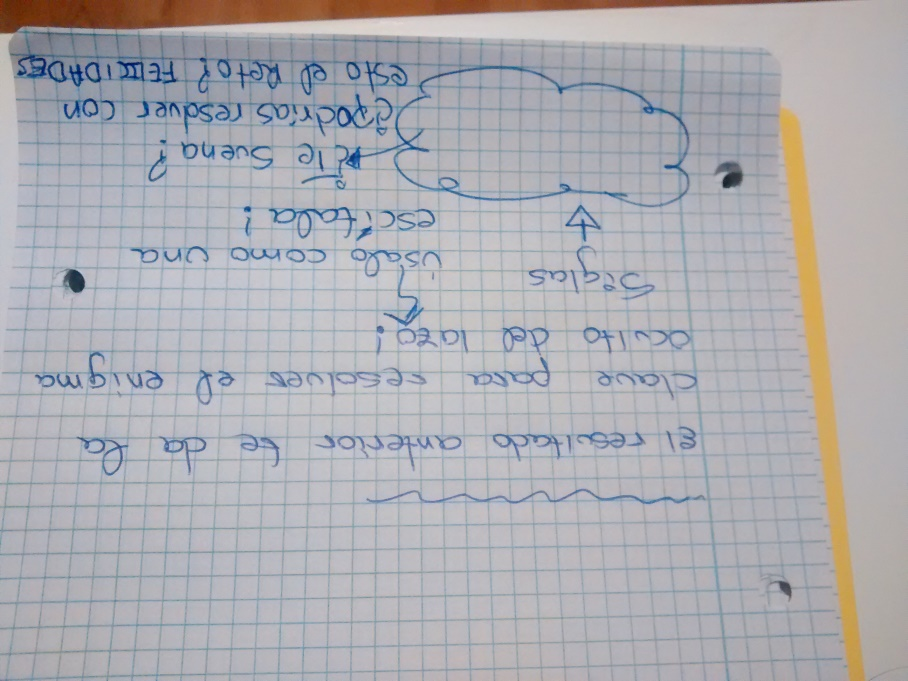 El resultado anterior te da la
clave para resolver el enigma
oculto del lazo!
Siglas
úsalo como una
escítala!
¿Te suena?
¿podrías resolver con
esto el Reto? FELICIDADES